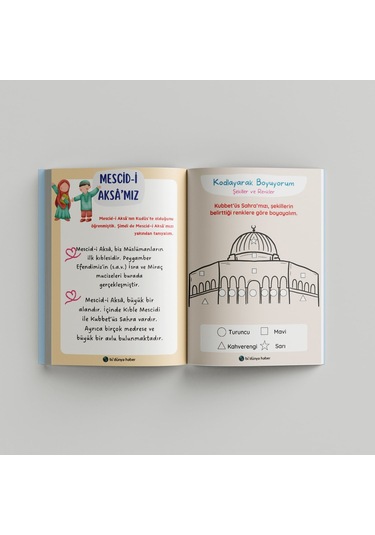 MESCİD-İ
AKSÂ'MIZ
Mescid-i Aksâ'nın Kudüs'te olduğunu
öğrenmiştik. Şimdi de Mescid-i Aksâ'mızı
yakından tanıyalım.
Mescid-i Aksâ, biz Müslümanların
ilk kıblesidir. Peygamber
Efendimiz'in (s.a.v.) İsra ve Miraç
mucizeleri burada
gerçekleşmiştir.
Mescid-i Aksâ, büyük bir
alandır. İçinde Kıble Mescidi
ile Kubbet'üs Sahra vardır.
Ayrıca birçok medrese ve
büyük bir avlu bulunmaktadır.
bi' dünya haber
Kodlayarak Boyuyorum
Şekiller ve Renkler
Kubbet'üs Sahra'mızı, şekillerin
belirttiği renklere göre boyayalım.
Turuncu
Mavi
Kahverengi
Sarı
bi' dünya haber